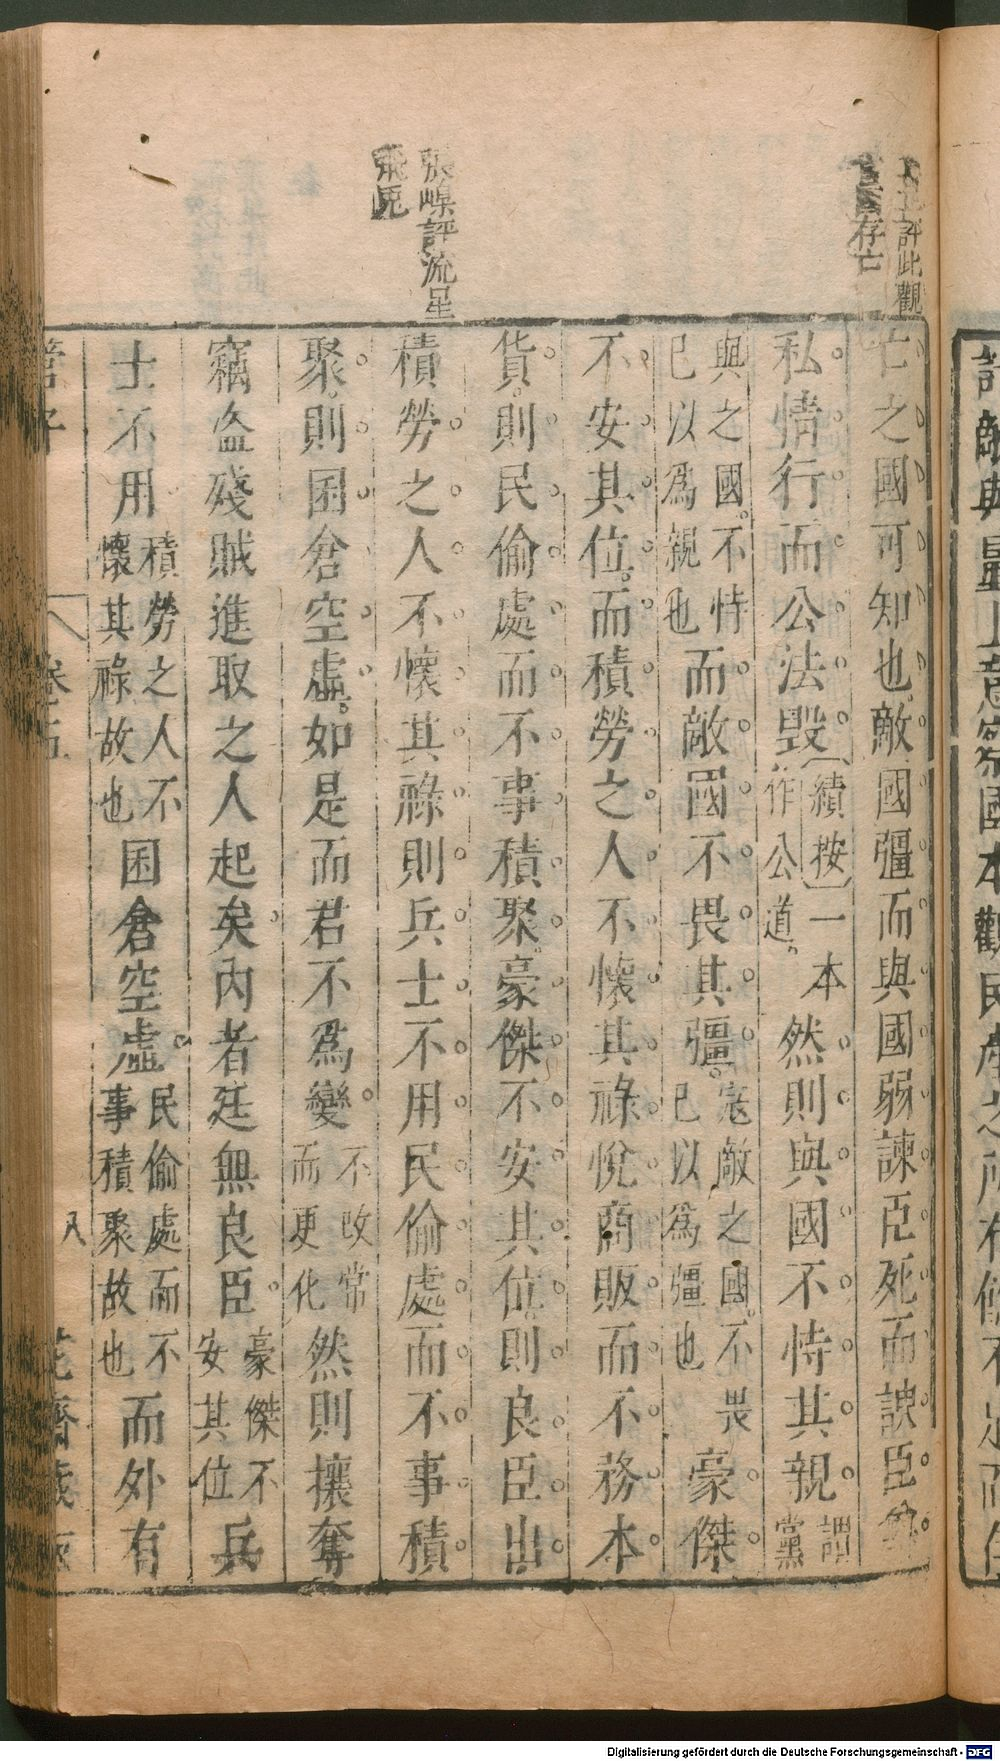 評此觀
存亡
張嵲評流星
飛兎
亡之國可知也敵國彊而與國弱諫臣死而諛臣尊
私情行而公法毀〔續按〕一本作公道。然則與國不恃其親謂黨
與之國。不恃己以爲親也而敵國不畏其彊。寇敵之國。不畏己以爲彊也豪傑
不安其位。而積勞之人不懷其祿悅商販而不務本
貨。則民偷處而不事積聚。豪傑不安其位。則良臣出
積勞之人不懷其祿則兵士不用民偷處而不事積
聚。則囷倉空虛。如是而君不爲變不改常而更化然則攘奪
竊盜殘賊進取之人起矣內者廷無良臣豪傑不安其位兵
士不用積勞之人不懷其祿故也囷倉空虛民偷處而不事積聚故也而外有
管子 卷五 八 花齋藏板
Digitalisierung gefördert durch die Deutsche Forschungsgemeinschaft - DFG